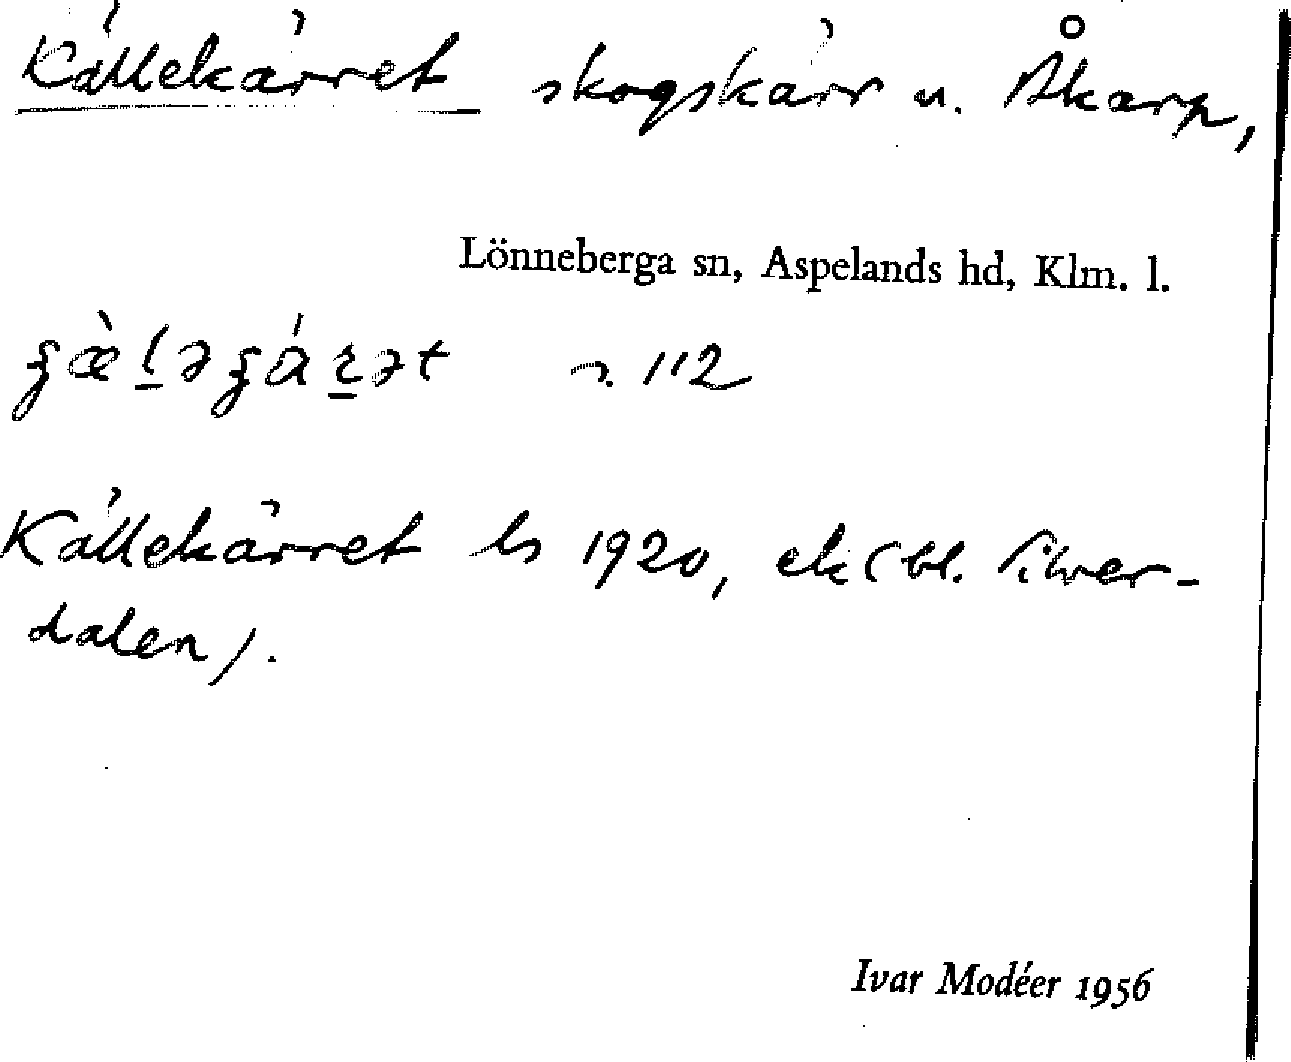 Källekärret skogskärr u. Åkarp,
Lönneberga sn, Aspelands hd, Klm. l.
112
Källekärret ls 1920, ek (bl. Silver-
dalen).
Ivar Modéer 1956